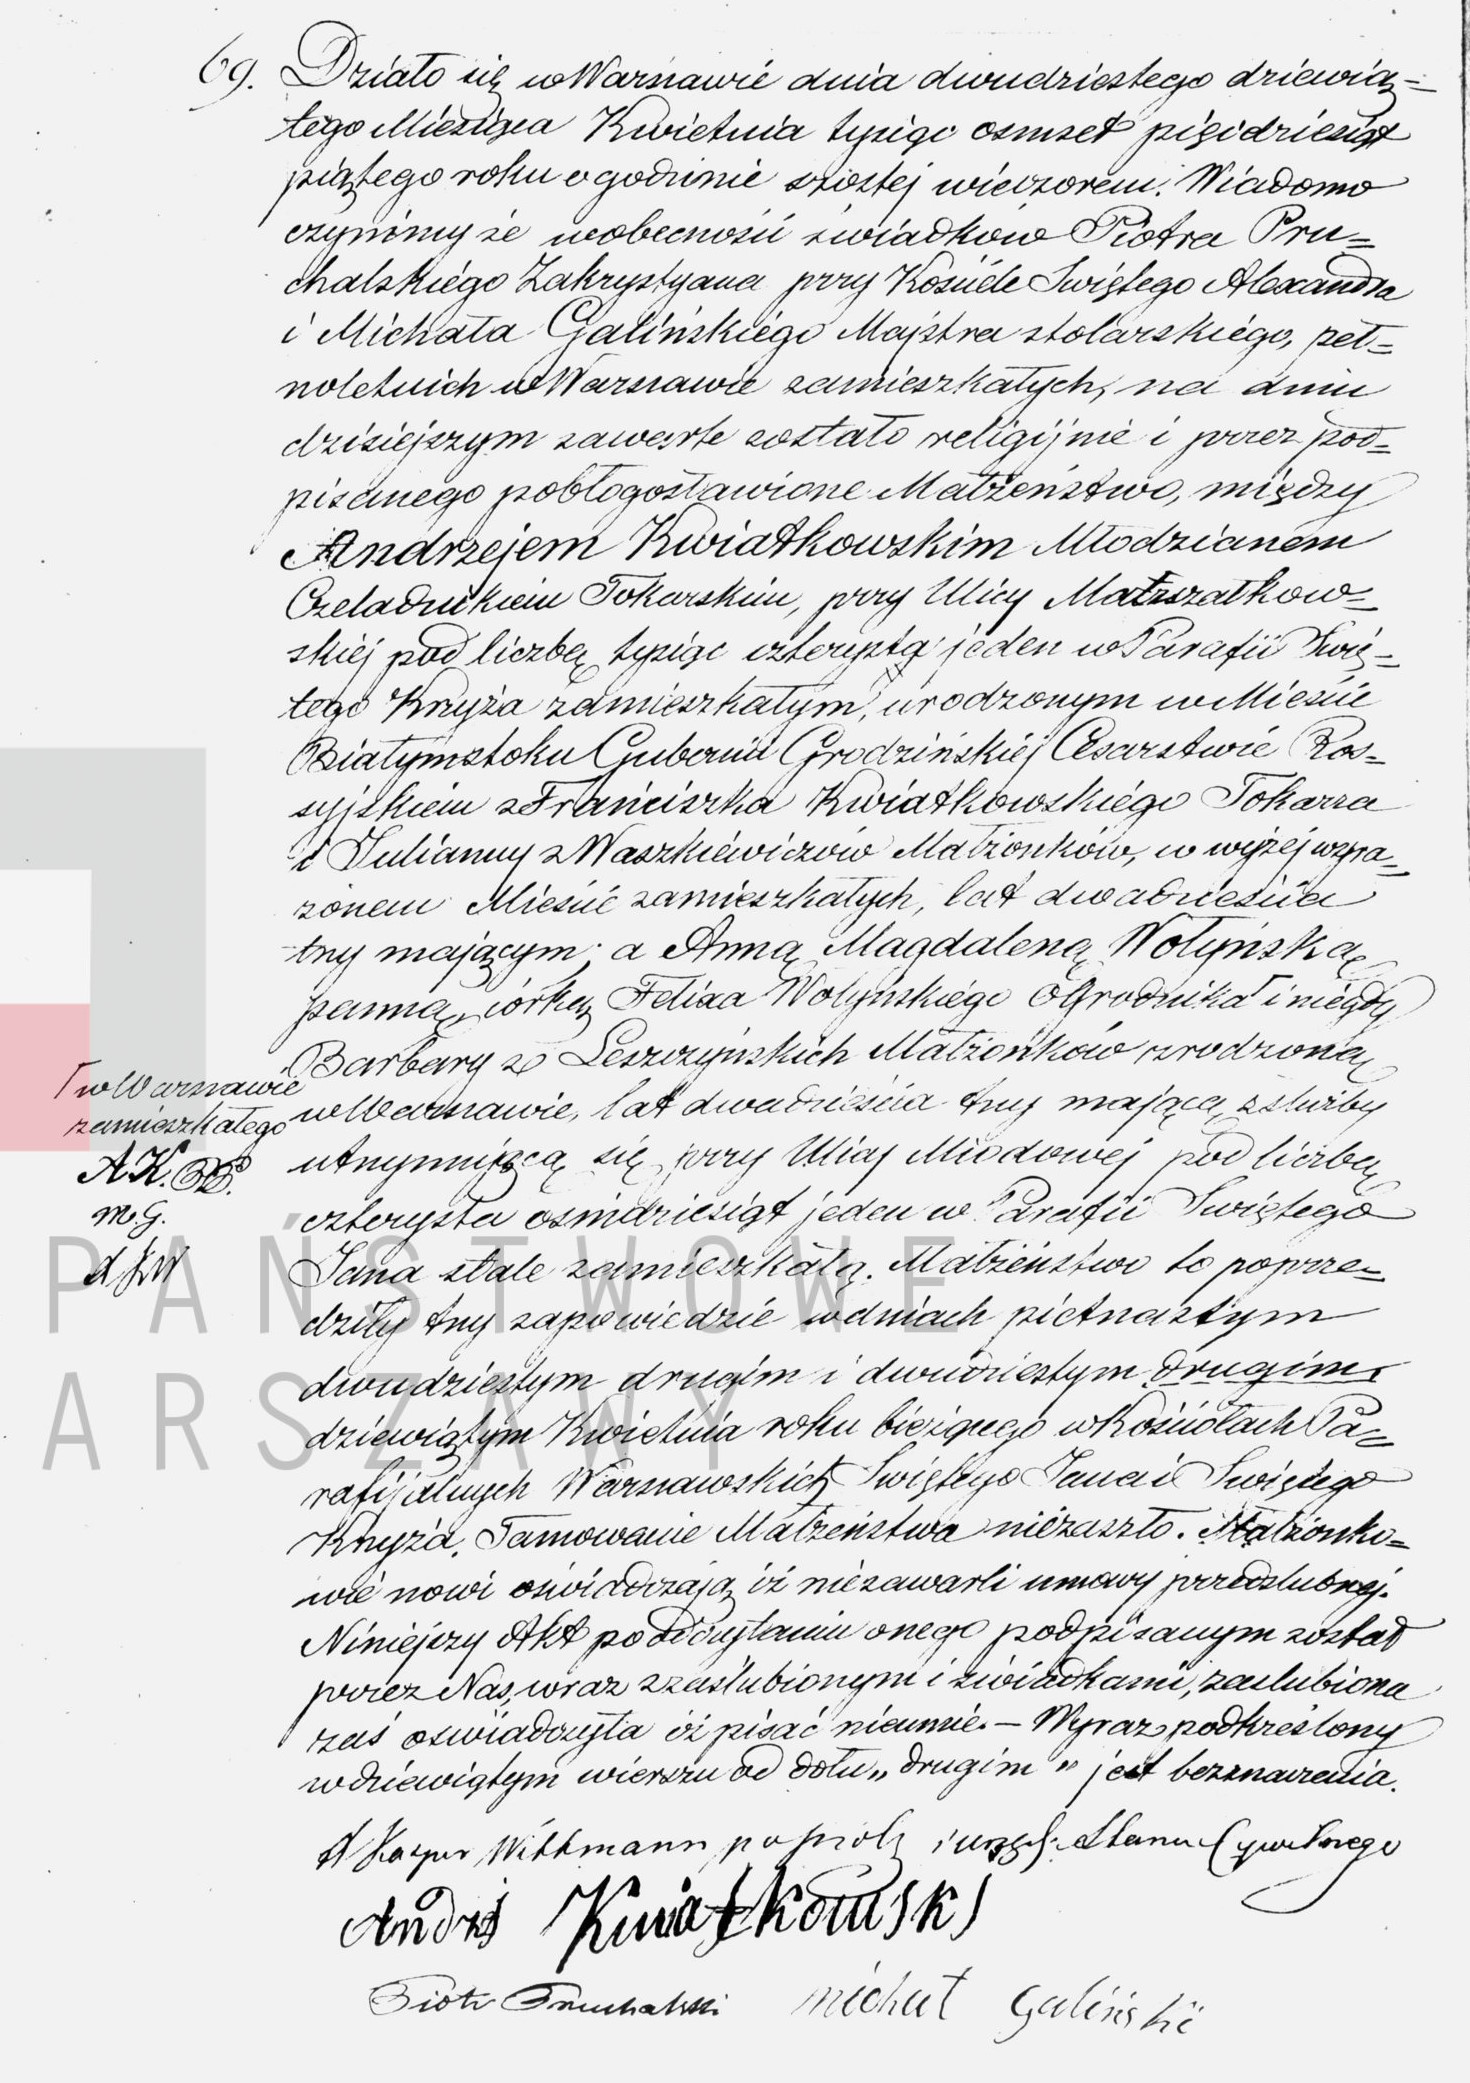 69. Działo się w Warszawie dnia dwudziestego dziewią=
tego Miesiąca Kwietnia tysiąc osmset pięćdziesiąt
piątego roku o godzinie szóstej wieczorem. Wiadomo
czynimy że w obecności świadków Piotra Pru=
chalskiégo Zakrystyana przy Kościele Świętego Alexandra
i Michała Galińskiégo Majstra stolarskiégo, peł=
noletnich w Warszawie zamieszkałych, na dniu
dzisiejszym zawarte zostało religijnie i przez pod=
pisanego pobłogosławione Małżeństwo, między
Andrzejem Kwiatkowskim Młodzianem
Czeladnikiem Tokarskim, przy Ulicy Marszałkow=
skiéj pod liczbą tysiąc czterysta jeden w Parafii Świę=
tego Krzyża zamieszkałym, urodzonym w Mieście
Białymstoku Gubernii Grodzińskiéj Cesarstwie Ros=
syjskiem z Franciszka Kwiatkowskiégo Tokarza
i Julianny z Waszkiéwiczów Małżonków, w wyżéj wyra=
żonem Mieście zamieszkałych, lat dwadzieścia
trzy mającym; a Anną Magdaleną Wołyńską
panną, córką Felixa Wołyńskiégo Ogrodnika Γ i niegdy
Barbary z Leszczyńskich Małżonków zrodzoną
w Warszawie, lat dwadzieścia trzy mającą, z służby
utrzymującą się, przy Ulicy Miodowéj pod liczbą
czterysta ośmdziesiąt jeden w Parafii Świętego
Jana stale zamieszkałą. Małżeństwo to poprze=
dziły trzy zapowiedzie w dniach piętnastym
dwudziestym drugim i dwudziestym drugim
dziewiątym Kwietnia roku bieżącego w Kościołach Pa=
rafijalnych Warszawskich Świętego Jana i Świętego
Krzyża. Tamowanie Małżeństwa niezaszło. Małżonko=
wie nowi oświadczają iż niezawarli umowy przedślubnej.
Niniejszy Akt po odczytaniu onego podpisanym został
przez Nas, wraz z zaślubionym i świadkami, zaślubiona
zaś oświadczyła iż pisać nieumie. — Wyraz podkreślony
w dziewiątym wierszu od dołu „drugim" jest bez znaczenia.
Γ w Warszawie
zamieszkałego
A.K. PP.
M.G.
X KW
X Kacper Wittmann
Stanu Cywilnego
Andrzej Kwiatkowski
Piotr Pruchalski Michał Galiński
PAŃSTWOWE
ARSZAWY